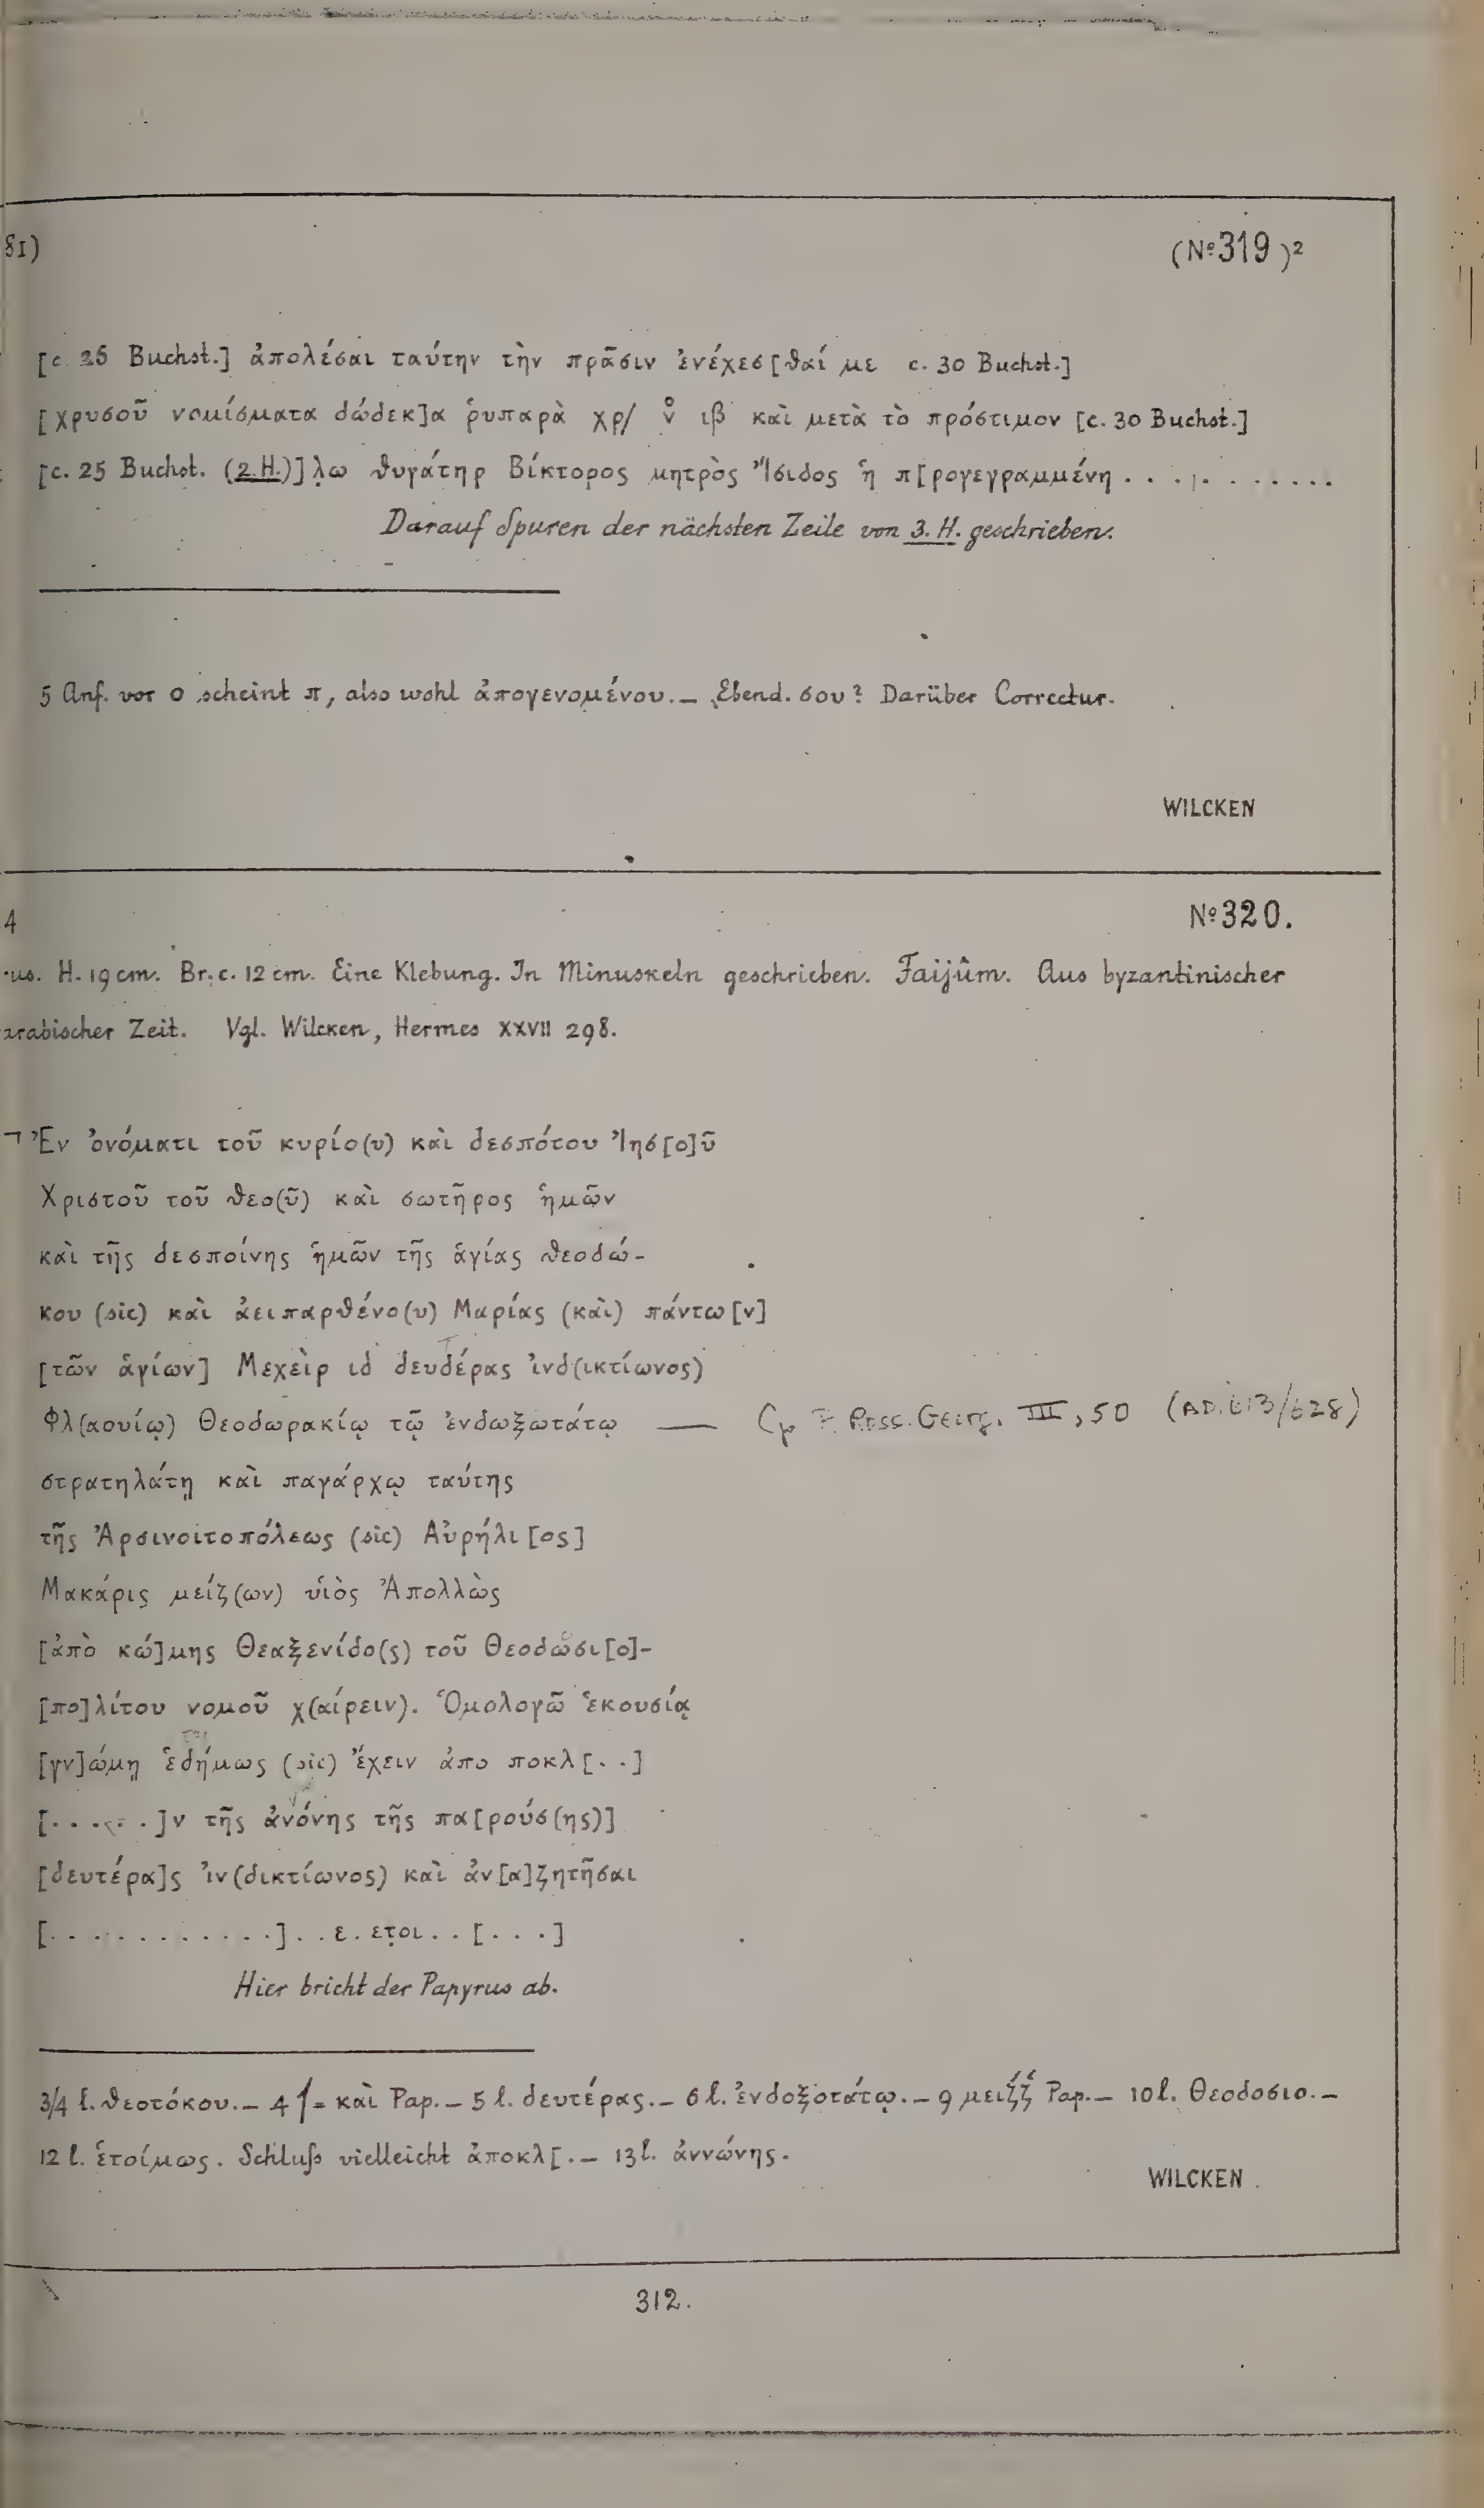 81) (No 319)²
[c. 25 Buchst.] ἀπολέσαι ταύτην τὴν πρᾶσιν ἐνέχεσ[θαί με c. 30 Buchst.]
[χρυσοῦ νομίσματα δώδεκ]α ῥυπαρὰ χρ/ ν̊ ιβ καὶ μετὰ τὸ πρόστιμον [c. 30 Buchst.]
[c. 25 Buchst. (2. H.)] λ̣ω θυγάτηρ Βίκτορος μητρὸς Ἴσιδος ἡ π[ρογεγραμμένη . . . . . . . . . .
Darauf Spuren der nächsten Zeile von 3. H. geschrieben.
5 Anf. vor ο scheint π, also wohl ἀπογενομένου. – Ebend. σου? Darüber Correctur.
WILCKEN
4 No 320.
us. H. 19 cm. Br. c. 12 cm. Eine Klebung. In Minuskeln geschrieben. Faijûm. Aus byzantinischer
arabischer Zeit. Vgl. Wilcken, Hermes XXVII 298.
Ἐν ὀνόματι τοῦ κυρίο(υ) καὶ δεσπότου Ἰησ[ο]ῦ
Χριστοῦ τοῦ θεο(ῦ) καὶ σωτῆρος ἡμῶν
καὶ τῆς δεσποίνης ἡμῶν τῆς ἁγίας θεοδώ-
κου (sic) καὶ ἀειπαρθένο(υ) Μαρίας (καὶ) πάντω[ν]
[τῶν ἁγίων] Μεχεὶρ ιδ δευδέρας ἰνδ(ικτίωνος)
Φλ(αουίῳ) Θεοδωρακίῳ τῷ ἐνδωξωτάτῳ — Cp P. Ross. Georg. III, 50 (AD. 613/628)
στρατηλάτῃ καὶ παγάρχῳ ταύτης
τῆς Ἀρσινοιτοπόλεως (sic) Αὐρήλι[ος]
Μακάρις μείζ(ων) υἱὸς Ἀπολλὼς
[ἀπὸ κώ]μης Θεαξενίδο(ς) τοῦ Θεοδωσι[ο]-
[πο]λίτου νομοῦ χ(αίρειν). Ὁμολογῶ ἑκουσίᾳ
[γν]ώμῃ ἑδήμως (sic) ἔχειν ἀπο ποκλ[. .]
[. . . . . .]ν τῆς ἀνόνης τῆς πα[ρούσ(ης)]
[δευτέρα]ς ἰν(δικτίωνος) καὶ ἀν[α]ζητῆσαι
[. . . . . . . . . . .] . . ε . ετ̣οι . . [. . . .]
Hier bricht der Papyrus ab.
3/4 l. θεοτόκου. – 4 ʃ = καὶ Pap. – 5 l. δευτέρας. – 6 l. ἐνδοξοτάτῳ. – 9 μειζ́ζ́ Pap. – 10 l. Θεοδοσιο. –
12 l. ἑτοίμως. Schluſs vielleicht ἀποκλ[. – 13 l. ἀννώνης.
WILCKEN
312.